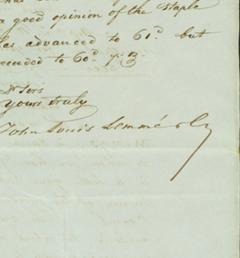 a good opinion of the staple
has advanced to 61d. but
receeded to 60d
Dr Sirs
yours truly
John Louis Lemmé & Co